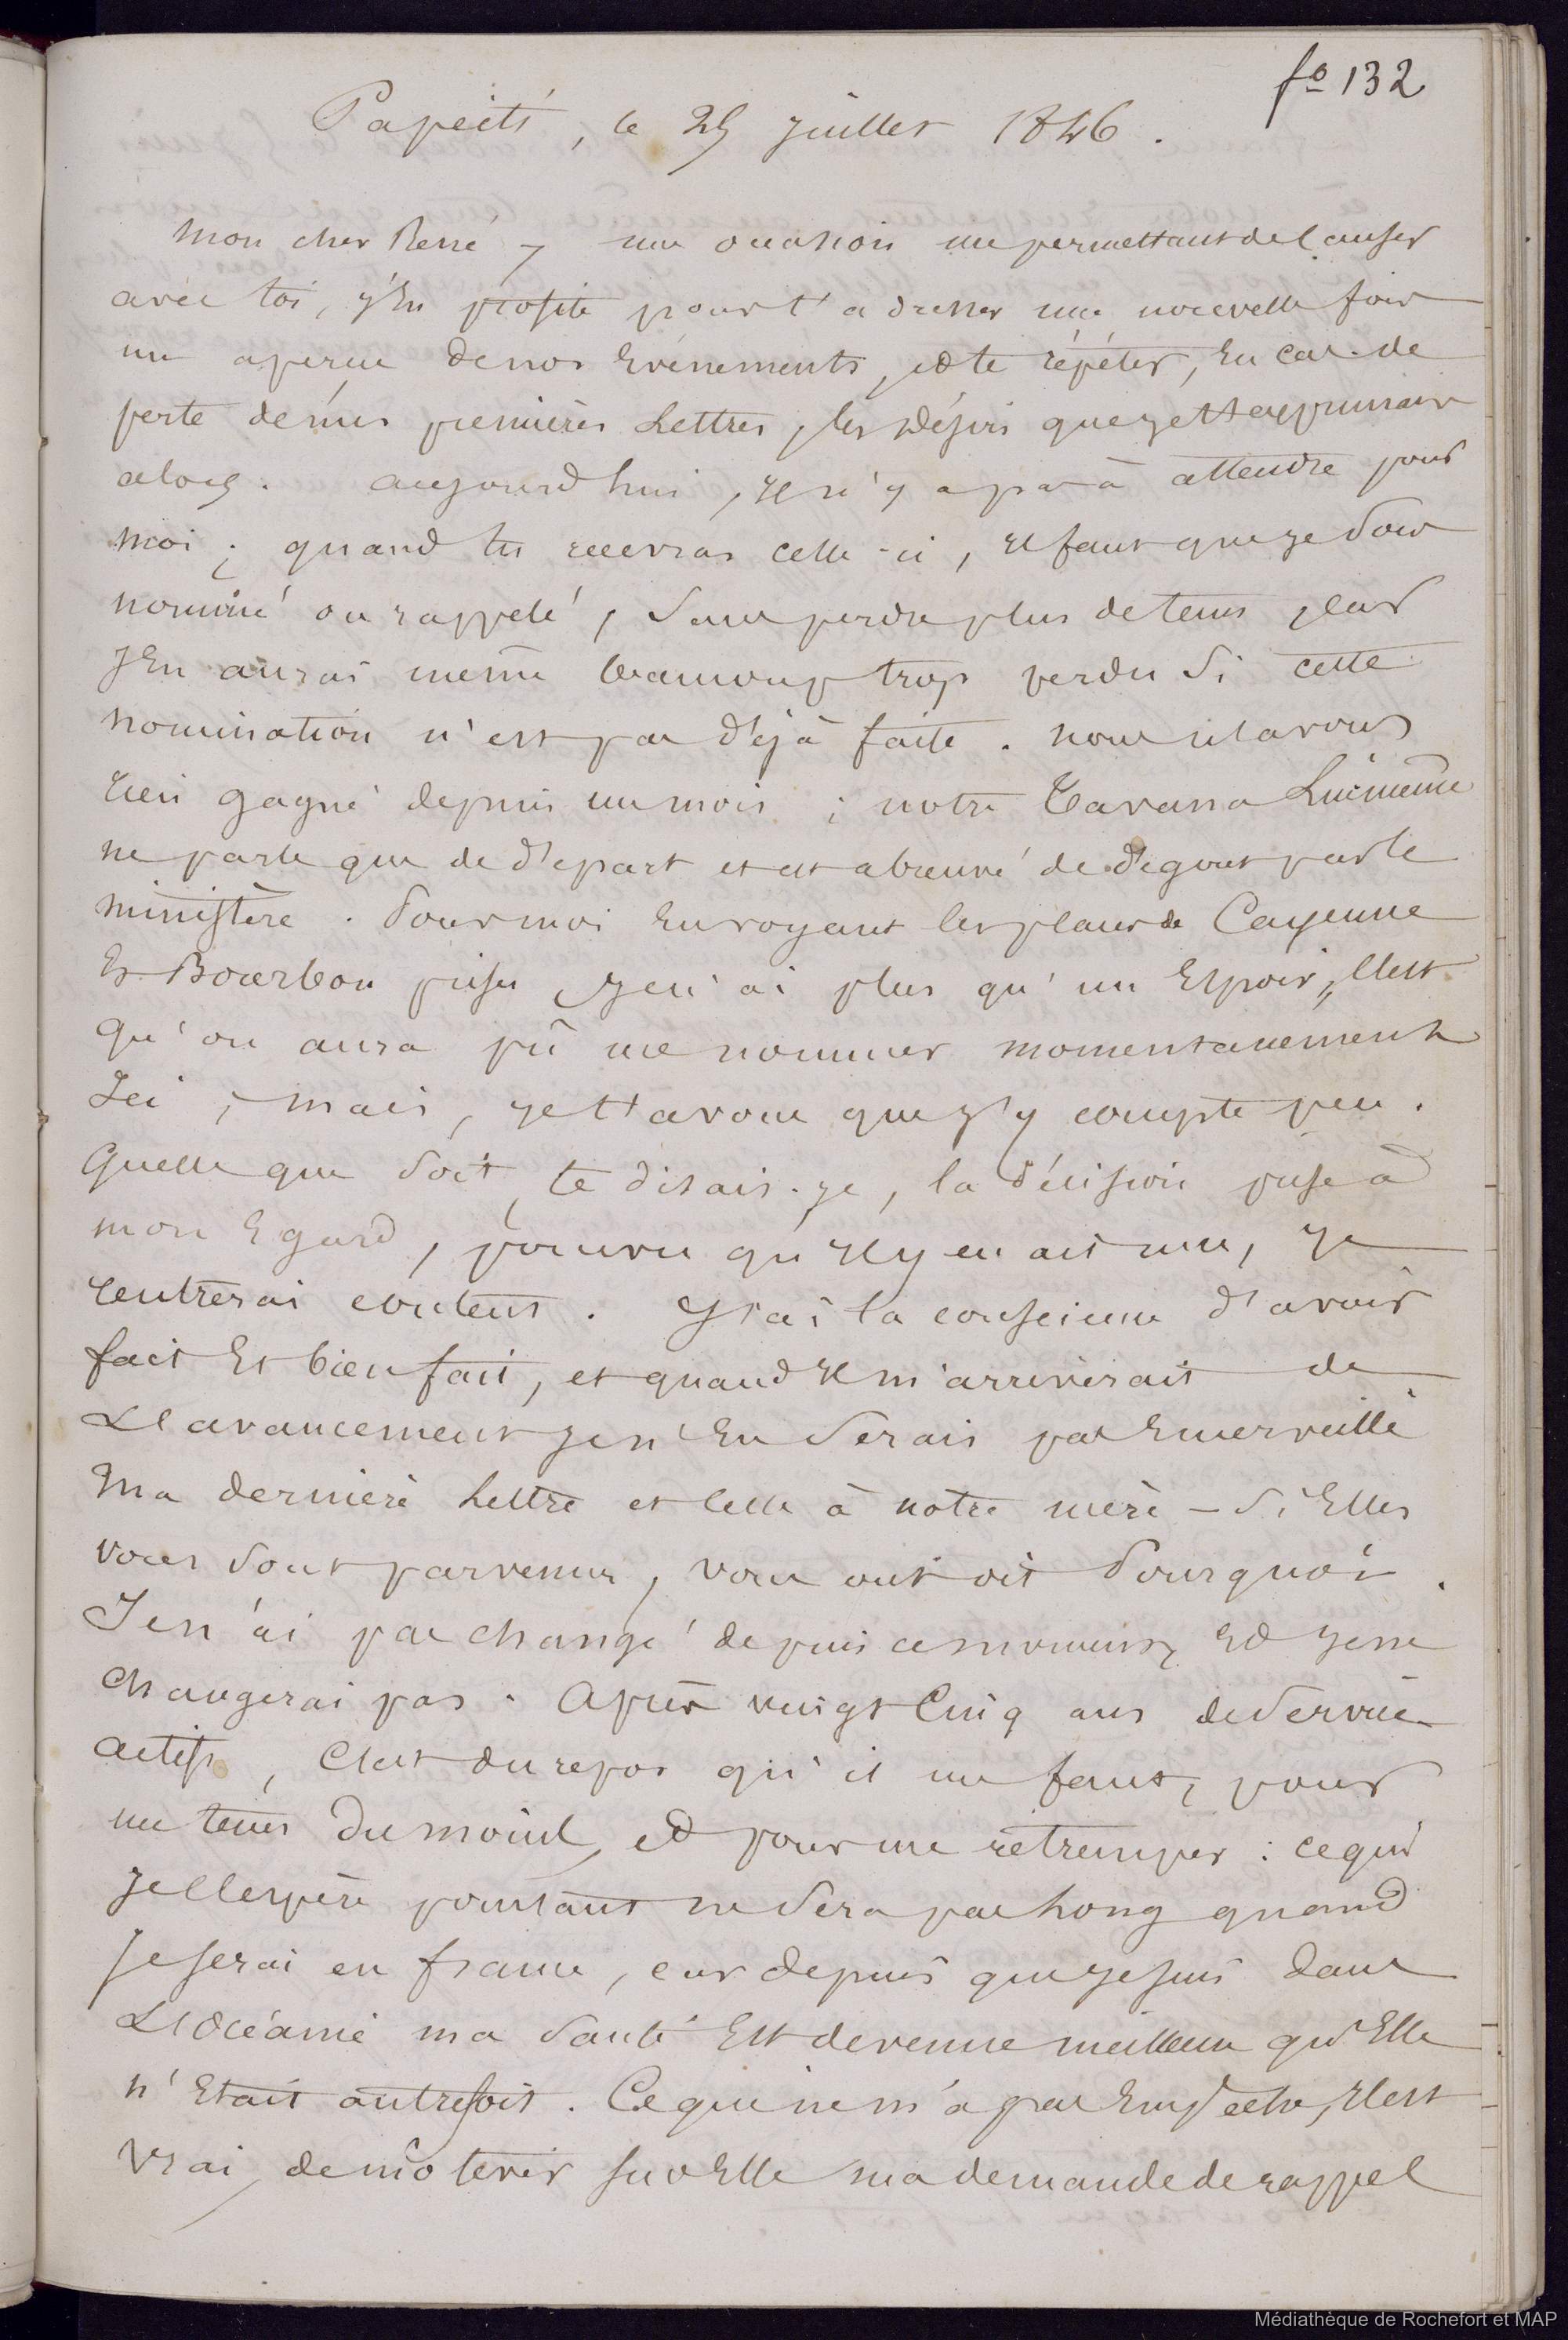 fo 132
Papeiti, le 25 Juillet 1846.
Mon cher René, une occasion me permettant de causer
avec toi, j'En profite pour t'adresser une nouvelle fois
un apercu de nos Evénements, et te répéter, En cas de
perte de mes premières Lettres, les désirs que je t'exprimais
alors. aujourd'hui, Il n'y a pas à attendre pour
moi ; quand tu recevras celle-ci, Il faut que je sois
nommé ou rappelé, sans perdre plus de tems, car
J'En aurai même beaucoup trop perdu si cette
nomination n'est pas déjà faite. nous n'avons
rien gagné depuis un mois ; notre Tavana Lui même
ne parle que de départ et est abreuvé de dégout par le
ministère. Pour moi En voyant les places de Cayenne
Et Bourbon prises, Je n'ai plus qu'un Espoir, C'est
qu'on aura pû me nommer momentanement
Ici ; mais, je t'avoue que j'y compte peu.
Quelle que soit, te disais-je, la décision prise à
mon Egard, pourvu qu'Il y en ait une, Je
rentrerai content. J'ai la conscience d'avoir
fait Et bien fait, et quand Il m'arriverait de
L'avancement je n'En serais pas Emerveillé
Ma dernière Lettre et celle à notre mère - si Elles
vous sont parvenues, vous ont dit Pourquoi.
Je n'ai pas changé depuis ce moment, Et je ne
Changerai pas. Après vingt Cinq ans de service
actifs, C'est du repos qu'il me faut, pour
un tems du moins, et pour me retremper : ce qui
Je l'espère pourtant ne sera pas Long quand
Je serai en france, car depuis que je suis dans
L'Océanie ma santé Est devenue meilleure qu'Elle
n'Etait autrefois. Ce qui ne m'a pas Empeché, Il est
vrai, de motiver sur Elle ma demande de rappel
Médiathèque de Rochefort et MAP